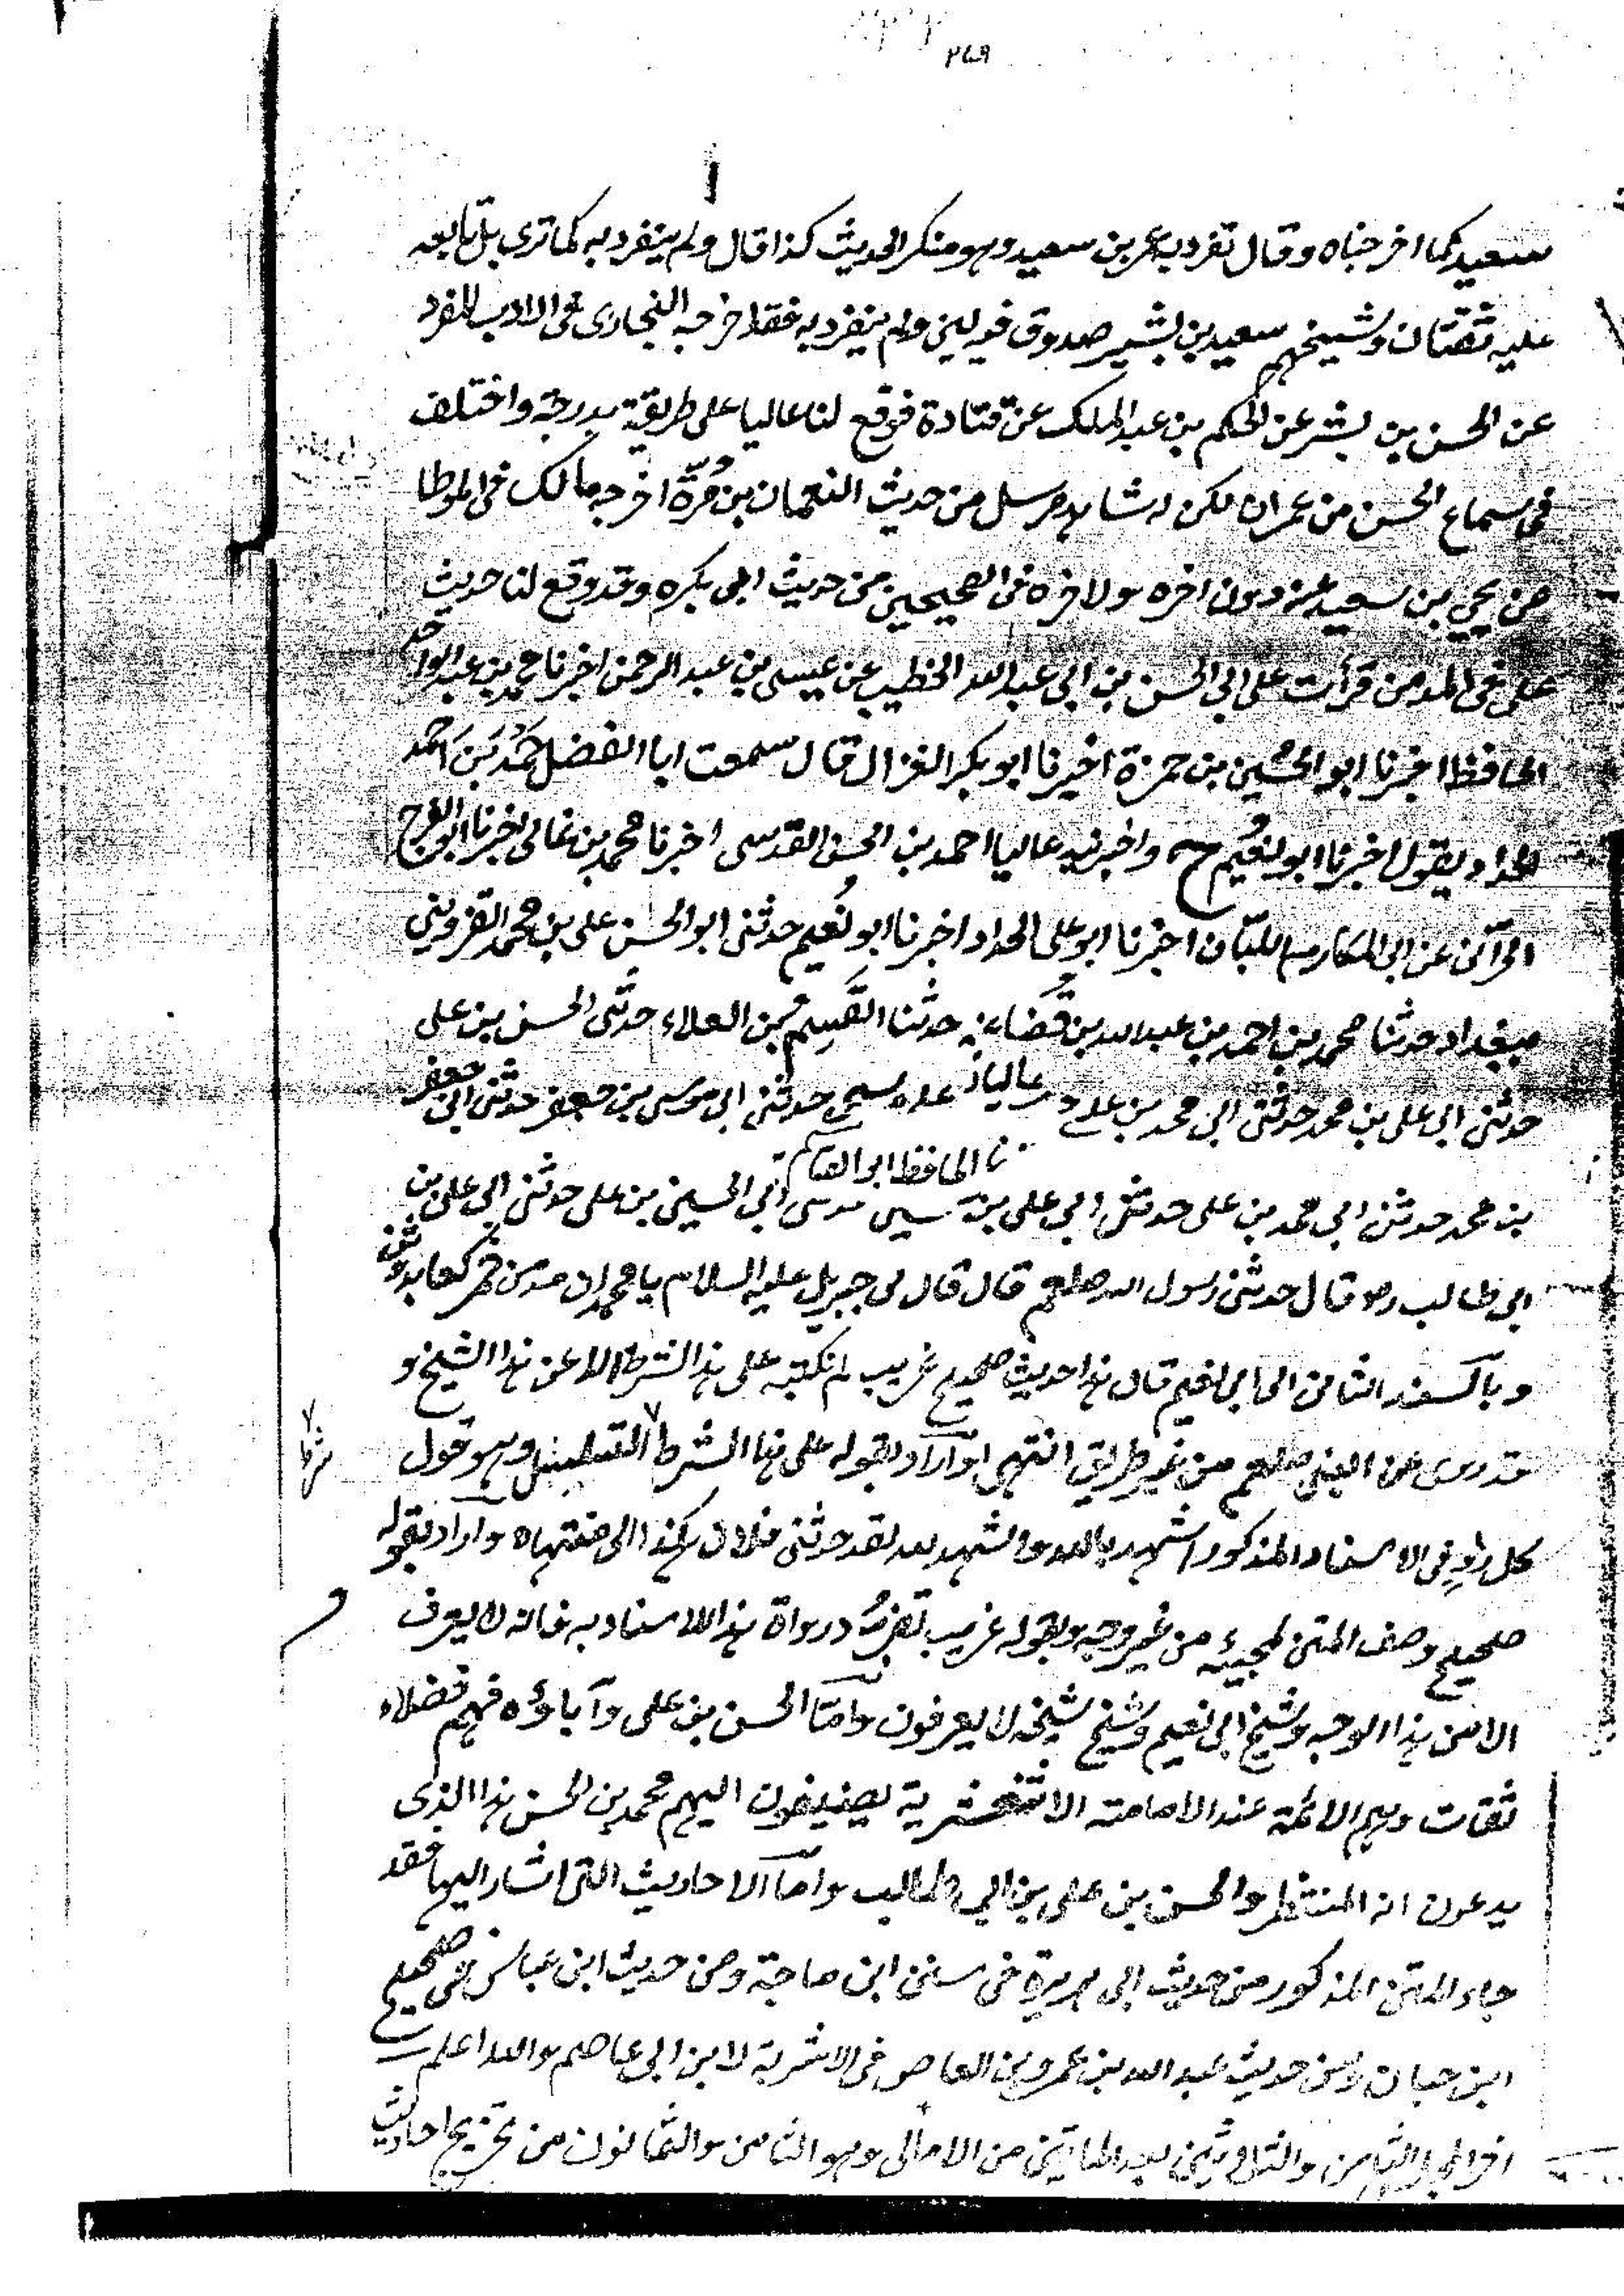 ٢٤٩
سعيد كما اخرجناه وقال تفرد به عمر بن سعيد وهو منكر الحديث كذا قال ولم ينفرد به كما ترى بل تابعه
عليه ثقتان وشيخهم سعيد بن بشير صدوق فيه لين ولم ينفرد به فقد اخرجه البخارى فى الادب المفرد
عن الحسن بن بشر عن الحكم بن عبد الملك عن قتادة فوقع لنا عاليا على طريقة بدرجة واختلف
فى سماع الحسن من عمران لكن له شاهد مرسل من حديث النعمان بن مُرّة اخرجه مالك فى الموطا
عن يحيى بن سعيد عنه دون اخره ولاخره فى الصحيحين من حديث ابى بكره وقد وقع لنا حديث
على فى المدمن قرأت على ابى الحسن بن ابى عبد الله الخطيب عن عيسى بن عبد الرحمن اخبرنا محمد بن عبد الواحد
الحافظ اخبرنا ابو الحسين بن حمزة اخبرنا ابو بكر الغزال قال سمعت ابا الفضل حَمْد بن احمد
الحداد يقول اخبرنا ابو نعيم ح واخبرنيه عاليا احمد بن الحسن القدسى اخبرنا محمد بن غالى اخبرنا ابو الفرج
الحرآنى عن ابى المكارم اللبّان اخبرنا ابو على الحداد اخبرنا ابو نُعيم حدثنى ابو الحسن على بن محمد القزوينى
ببغداد حدثنا محمد بن احمد بن عبد الله بن قُضاعة حدثنا القسم بن العلاء حدثنى الحسن بن على
حدثنى ابى على بن محمد حدثنى ابى محمد بن على عاليا حدثنى ابى موسى بن جعفر حدثنى ابى جعفر
نا الحافظ ابو القاسم
بن محمد حدثنى ابى محمد بن على حدثنى ابى على بن ابى الحسين بن على حدثنى ابى على بن
ابى طالب رضـ قال حدثنى رسول الله صلعم قال قال لى جبريل عليه السلام يا محمد ان مدمن خمر كعابد وثن
وبالسند الثامن الى ابى نعيم قال هذا حديث صحيح غريب لم نكتبه على هذا الشرط الا عن هذا الشيخ و
قد روى عن النبى صلعم من غير طريق انتهى واراد بقوله على هذا الشرط التسلسل وهو قول
كل راوٍ فى الاسناد المذكور اشهد بالله واشهد لله لقد حدثنى فلان هكذا الى منتهاه واراد بقوله
صحيح وصف المتن لمجيئه من غير وجه وبقوله غريب تفرُّد رواة هذا الاسناد به فانه لا يعرف
الا من هذا الوجه وشيخ ابى نعيم وشيخ شيخه لا يعرفون وامّا الحسن بن على وآباؤه فهم فضلاء
ثقات وهم الائمة عند الامامية الاثنعشرية يضيفون اليهم محمد بن الحسن هذا الذى
يدعون انه المنتظر والحسن بن على بن ابى طالب وامّا الاحاديث التى اشار اليها فقد
جاء المتن المذكور من حديث ابى هريرة فى سنن ابن ماجة ومن حديث ابن عباس فى صحيح
ابن حبان ومن حديث عبد الله بن عمرو بن العاص فى الاشربة لابن ابى عاصم والله اعلم
اخر المجلس الثامن والثلاثين بعد المايتين من الامالى وهو الثامن والثمانون من تخريج احاديث